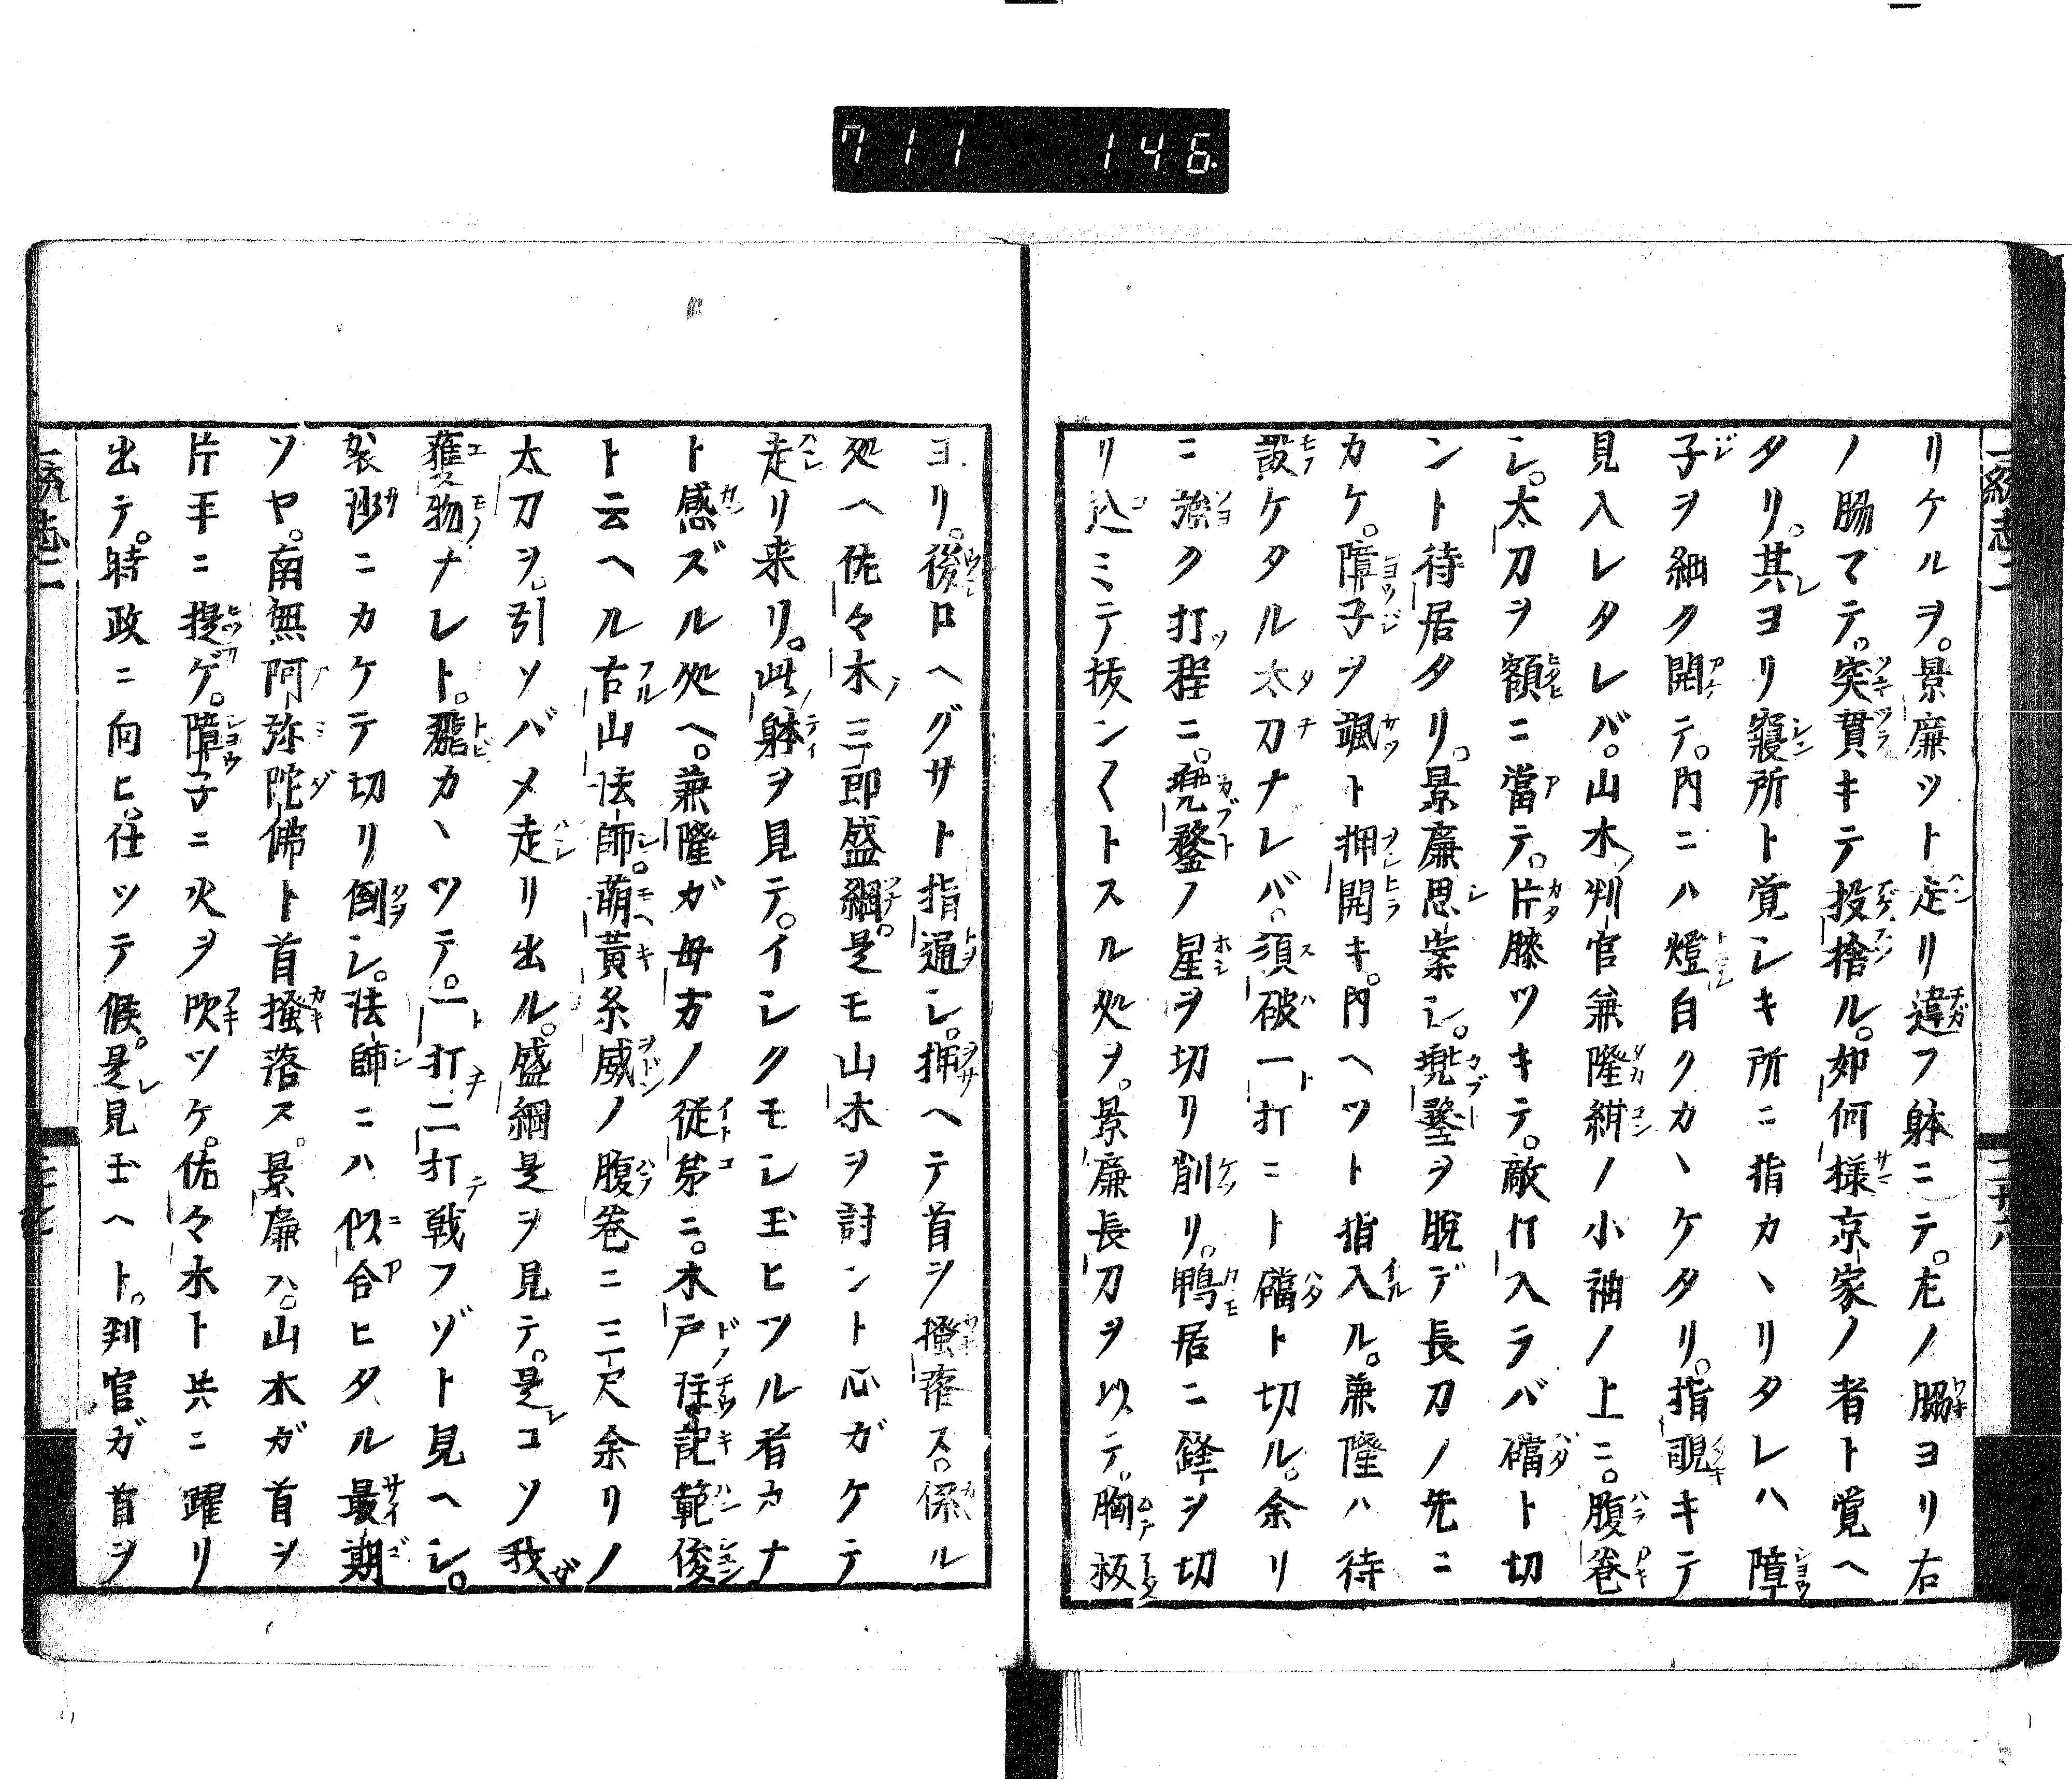 711 146
リケルヲ。景廉ツト走リ違フ躰ニテ。左ノ脇ヨリ右
ノ腸マテ。突貫キテ投捨ル。如何様京家ノ者ト覚ヘ
タリ。其ヨリ寝所ト覚シキ所ニ指カヽリタレハ障
子ヲ細ク開テ。内ニハ燈白クカヽケタリ。指覗キテ
見入レタレバ。山木判官兼隆紺ノ小袖ノ上ニ。腹巻
シ。太刀ヲ額ニ當テ。片膝ツキテ。敵打入ラバ礑ト切
ント待居タリ。景廉思案シ。兜鍪ヲ脱デ長刀ノ先ニ
カケ。障子ヲ颯ト押開キ。内ヘツト指入ル。兼隆ハ待
設ケタル太刀ナレバ。須破一打ニト礑ト切ル。余リ
ニ強ク打程ニ。兜鍪ノ星ヲ切リ削リ。鴨居ニ鋒ヲ切
リ込ミテ抜ン〱トスル処ヲ。景廉長刀ヲ以テ。胸板
ヨリ。後ロヘグサト指通シ。押ヘテ首ヲ掻落ス。係ル
処ヘ佐々木三郎盛綱。是モ山木ヲ討ント心ガケテ
走リ来リ。此躰ヲ見テ。イシクモシ玉ヒツル者カナ
ト感ズル処ヘ。兼隆ガ母方ノ従弟ニ。木戸註記範俊
ト云ヘル古山法師。萌黄糸威ノ腹巻ニ三尺余リノ
太刀ヲ引ソバメ走リ出ル。盛綱是ヲ見テ。是コソ我
獲物ナレト。飛カヽツテ。一打二打戦フゾト見ヘシ。
袈裟ニカケテ切リ倒シ。法師ニハ似合ヒタル最期
ソヤ。南無阿弥陀佛ト首掻落ス。景廉ハ。山木ガ首ヲ
片手ニ提ゲ。障子ニ火ヲ吹ツケ。佐々木ト共ニ躍リ
出テ。時政ニ向ヒ。仕ツテ候。是見玉ヘト。判官ガ首ヲ